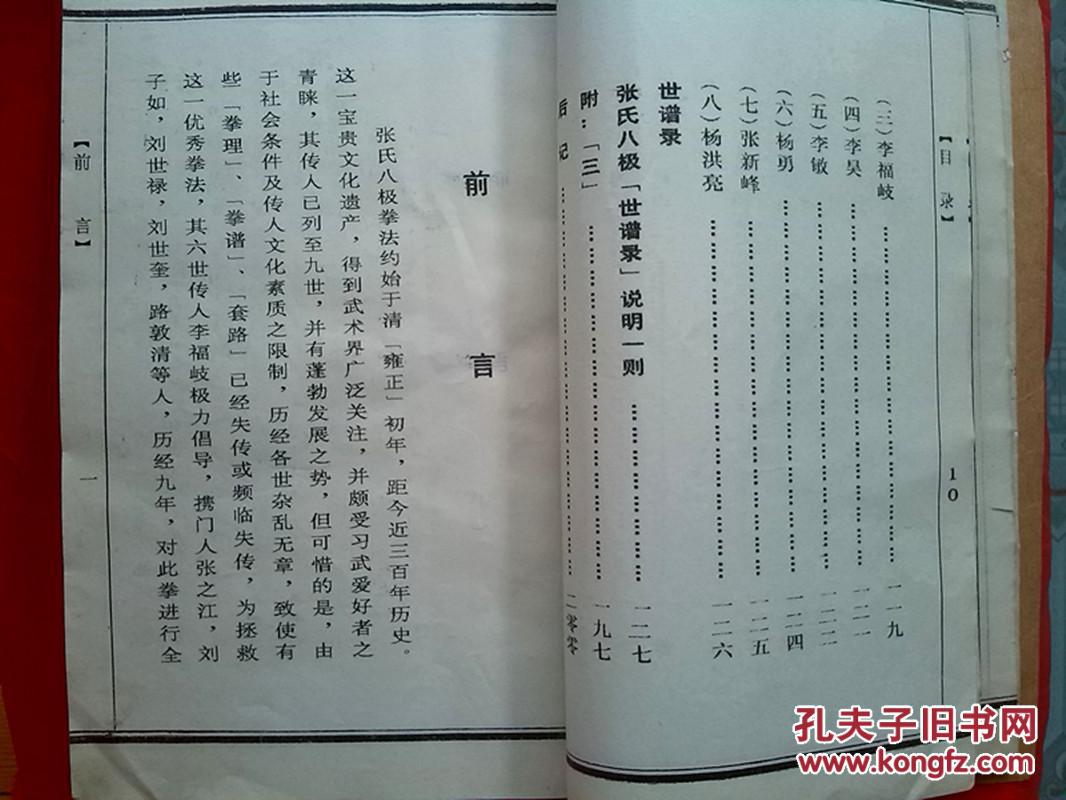 【目录】
10
（三）李福岐……一一九
（四）李昊……一二一
（五）李敏……一二二
（六）杨勇……一二四
（七）张新峰……一二五
（八）杨洪亮……一二六
世谱录
张氏八极「世谱录」说明一则……一二七
附：「三」……一九七
后记……二零零
前言
张氏八极拳法约始于清「雍正」初年，距今近三百年历史。
这一宝贵文化遗产，得到武术界广泛关注，并颇受习武爱好者之
青睐，其传人已列至九世，并有蓬勃发展之势，但可惜的是，由
于社会条件及传人文化素质之限制，历经各世杂乱无章，致使有
些「拳理」、「拳谱」、「套路」已经失传或频临失传，为拯救
这一优秀拳法，其六世传人李福岐极力倡导，携门人张之江，刘
子如，刘世禄，刘世奎，路敦清等人，历经九年，对此拳进行全
【前言】
一
孔夫子旧书网
www.kongfz.com